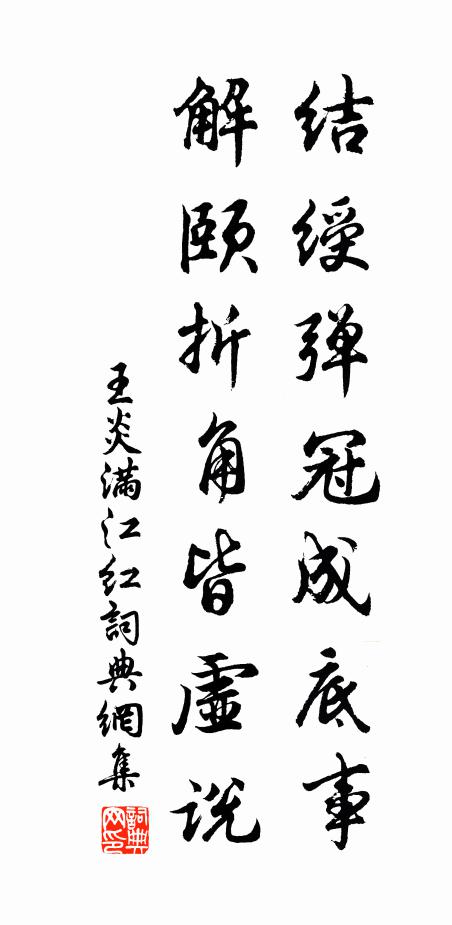 结绶弹冠成底事
解颐折角皆虚说
王炎满江红詞典網集
詞典网印